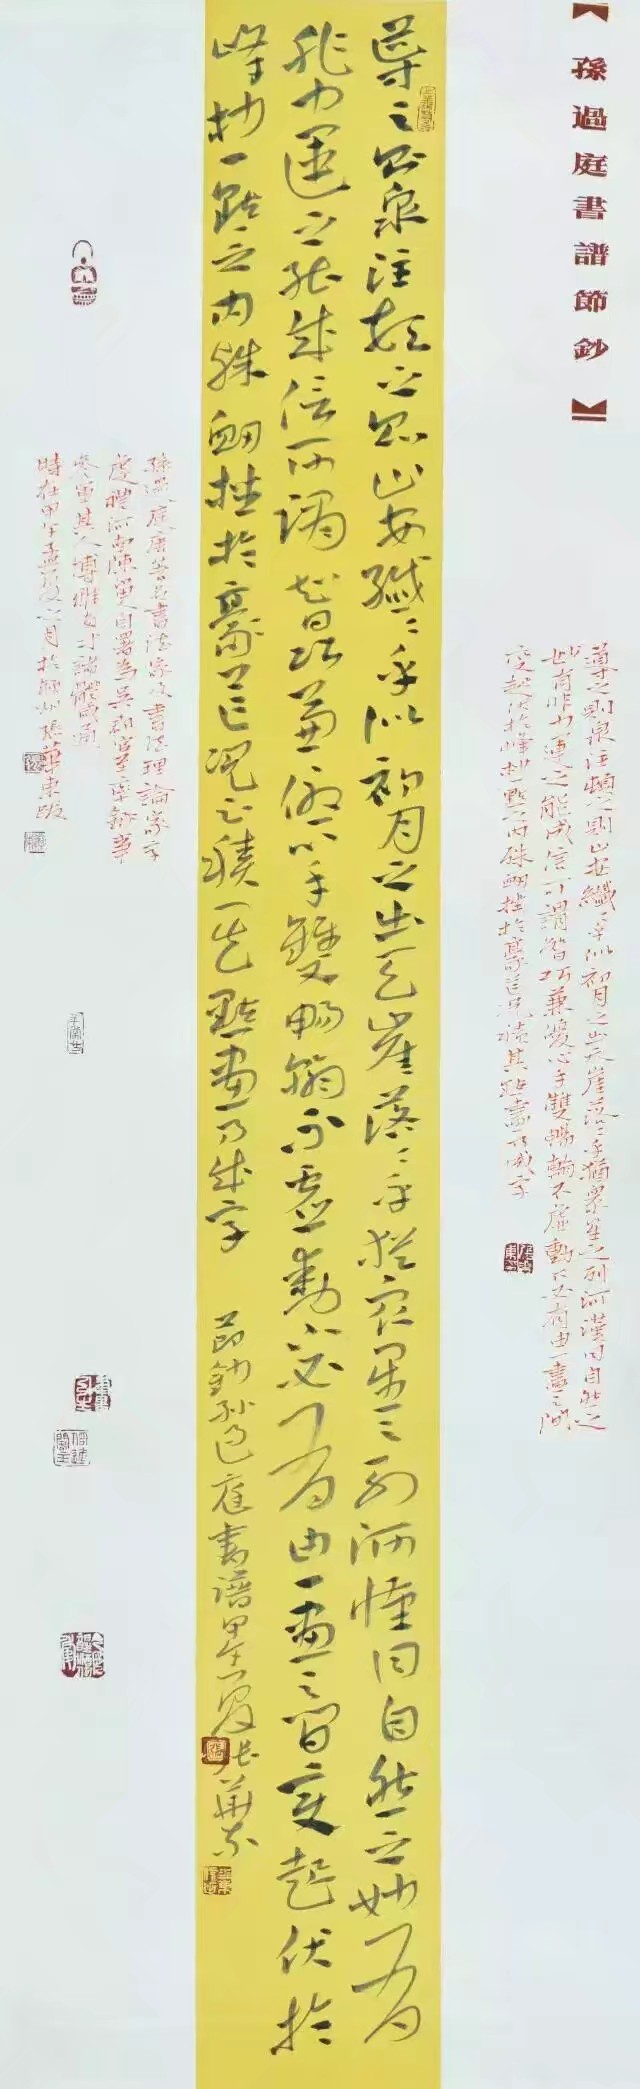 【孫過庭書譜節鈔】
導之則泉注頓之則山安纖〻乎似初月之出天崖落〻乎猶衆星之列河漢同自然之
妙有非力運之能成信可謂智巧兼優心手雙暢翰不虛動下必有由一畫之間
變起伏於峰杪一點之內殊衂挫於豪芒況積其點畫乃成字
導之則泉注頓之則山安纖〻乎似初月之出天崖落〻乎猶衆星之列河漢同自然之妙有
非力運之能成信可謂智巧兼優心手雙暢翰不虛動下必有由一畫之間變起伏於
峰杪一點之內殊衂挫於豪芒況云積其點畫乃成字
節鈔孫過庭書譜甲午夏張華東
孫過庭唐著名書法家及書法理論家字
虔禮河南陳留人自署為吳郡官至率府錄事
參軍其人博雅有才諸體咸通
時在甲午孟夏之月於